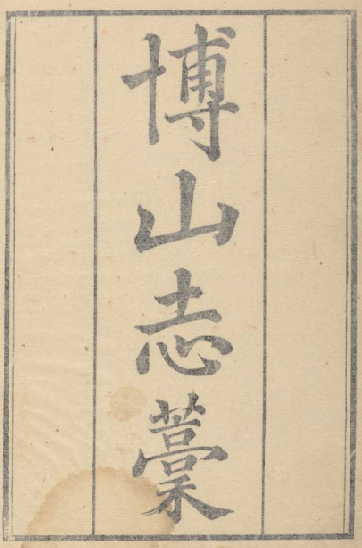 博山志藁